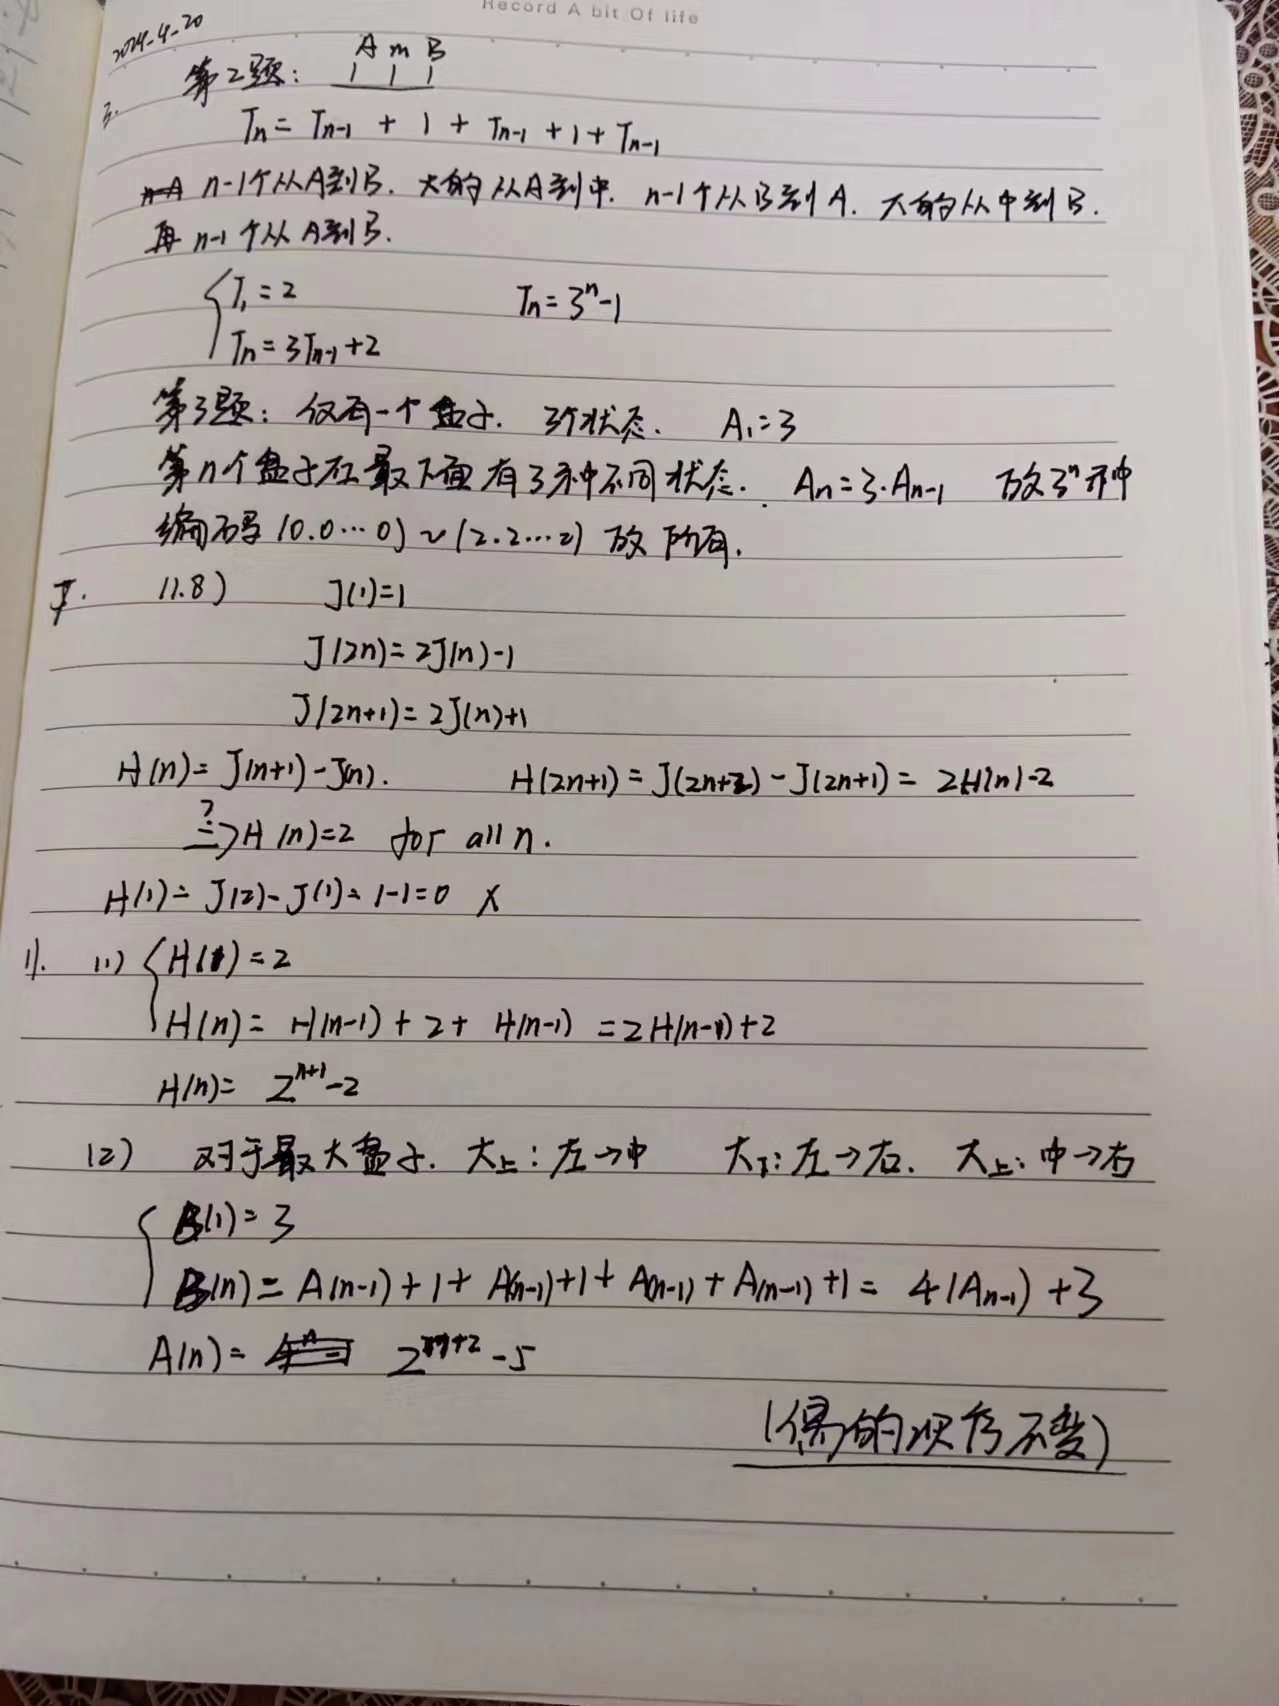 Record A bit Of life
2024-4-20
第2题: A m B
3.
Tn = Tn-1 + 1 + Tn-1 + 1 + Tn-1
n-1个从A到B. 大的从A到中. n-1个从B到A. 大的从中到B.
再 n-1个从A到B.
T1 = 2    Tn = 3^n - 1
Tn = 3Tn-1 + 2
第3题: 仅有一个盘子. 3个状态. A1 = 3
第n个盘子在最下面有3种不同状态. An = 3·An-1 故3^n种
编码 (0.0…0) ~ (2.2…2) 故所有.
7. (1.8) J(1)=1
J(2n) = 2J(n)-1
J(2n+1) = 2J(n)+1
H(n) = J(n+1) - J(n). H(2n+1) = J(2n+2) - J(2n+1) = 2H(n)-2
?
=> H(n)=2 for all n.
H(1) = J(2) - J(1) = 1-1=0 ×
11. (1) H(1) = 2
H(n) = H(n-1) + 2 + H(n-1) = 2H(n-1)+2
H(n) = 2^{n+1} - 2
(2) 对于最大盘子. 大上: 左→中 大下: 左→右. 大上: 中→右
B(1) = 3
B(n) = A(n-1) + 1 + A(n-1) + 1 + A(n-1) + A(n-1) + 1 = 4(An-1) + 3
A(n) = 2^{n+2} - 5
(偶的次序不变)